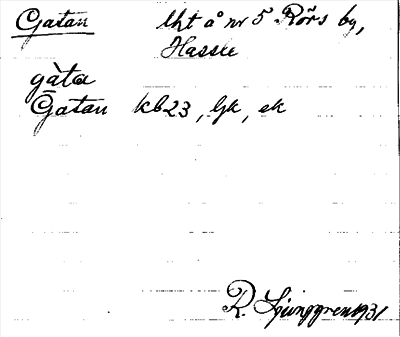 Gatan tht å nr 5 Rörs by,
Hassle
gàta
Gatan kb23, ljk, ek
R. Ljunggren 1931